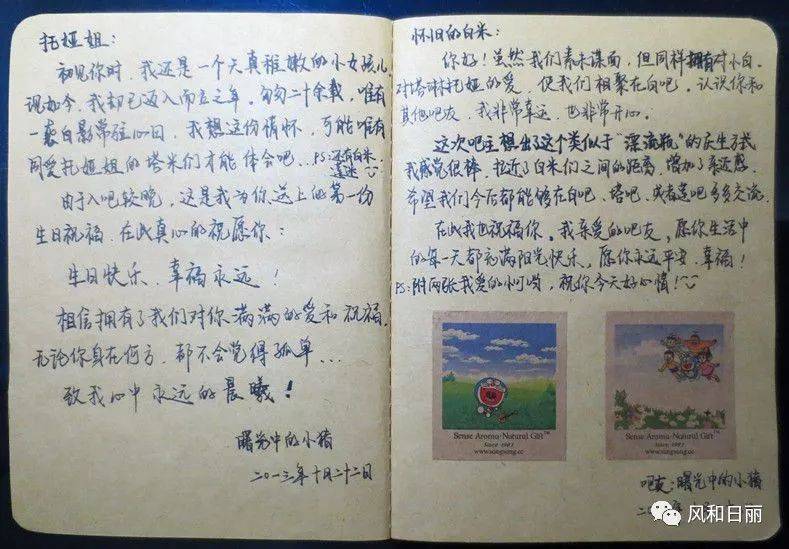 托娅姐：
初见你时，我还是一个天真稚嫩的小女孩儿
现如今，我却已迈入而立之年。匆匆二十余载，唯有
一袭白影常驻心田，我想这份情怀，可能唯有
同爱托娅姐的塔米们才能体会吧…PS：还有白米、
莲迷
由于入吧较晚，这是我为你送上的第一份
生日祝福，在此真心的祝愿你：
生日快乐，幸福永远！
相信拥有了我们对你满满的爱和祝福，
无论你身在何方，都不会觉得孤单…
致我心中永远的晨曦！
曙光中的小猪
二〇一三年十月二十二日
怀旧的白米：
你好！虽然我们素未谋面，但同样拥有对小白、
对塔琳托娅的爱，使我们相聚在白吧。认识你和
其他吧友，我非常幸运，也非常开心。
这次吧主想出了这个类似于“漂流瓶”的庆生方式
我感觉很棒，拉近了白米们之间的距离，增加了亲近感。
希望我们今后都能够在白吧、塔吧，或者莲吧多多交流。
在此我也祝福你，我亲爱的吧友，愿你生活中
的每一天都充满阳光快乐，愿你永远平安、幸福！
PS：附两张我爱的小叮呦，祝你今天好心情！
Sense Aroma·Natural Gift™
Since 1983
www.sungsung.cc
Sense Aroma·Natural Gift™
Since 1983
www.sungsung.cc
吧友：曙光中的小猪
二〇
风和日丽